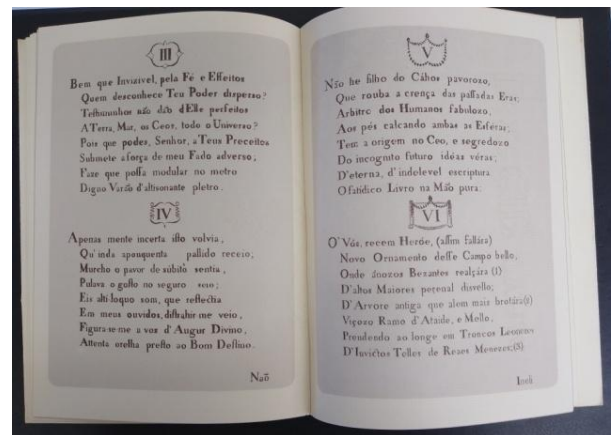 III
Bem que Invizivel, pela Fé e Effeitos
Quem desconhece Teu Poder disperso?
Testimunhos não dão dElle perfeitos
A Terra, Mar, os Ceos, todo o Universo?
Pois que podes, Senhor, a Teus Preceitos
Submete a força de meu Fado adverso;
Faze que possa modular no metro
Digno Varão d'altisonante pletro.
IV
Apenas mente incerta isto volvia,
Qu'inda apouquenta pallido receio;
Murcho o pavor de súbito sentia,
Pulava o gosto no seguro seio;
Eis altiloquo som, que reflectia
Em meus ouvidos, distrahir me veio,
Figura-se-me a voz d'Augur Divino,
Attenta orelha presto ao Bom Destino.
Naõ
V
Não he filho do Cáhos pavorozo,
Que rouba a crença das passadas Eras;
Arbitro dos Humanos fabulozo,
Aos pés calcando ambas as Esféras;
Tem a origem no Ceo, e segredozo
Do incognito futuro idéas véras;
D'eterna, d'indelevel escriptura
O fatídico Livro na Mão pura.
VI
O' Vós, recem Heróe, (assim fallára)
Novo Ornamento desse Campo bello,
Onde Bezantes realçára (1)
D'altos Maiores perenal disvello;
D'Arvore antiga que alem mais brotára(2)
Viçozo Ramo d'Ataide, e Mello,
Prendendo ao longe em Troncos
D'Invictos Telles de Reaes Menezes;(3)